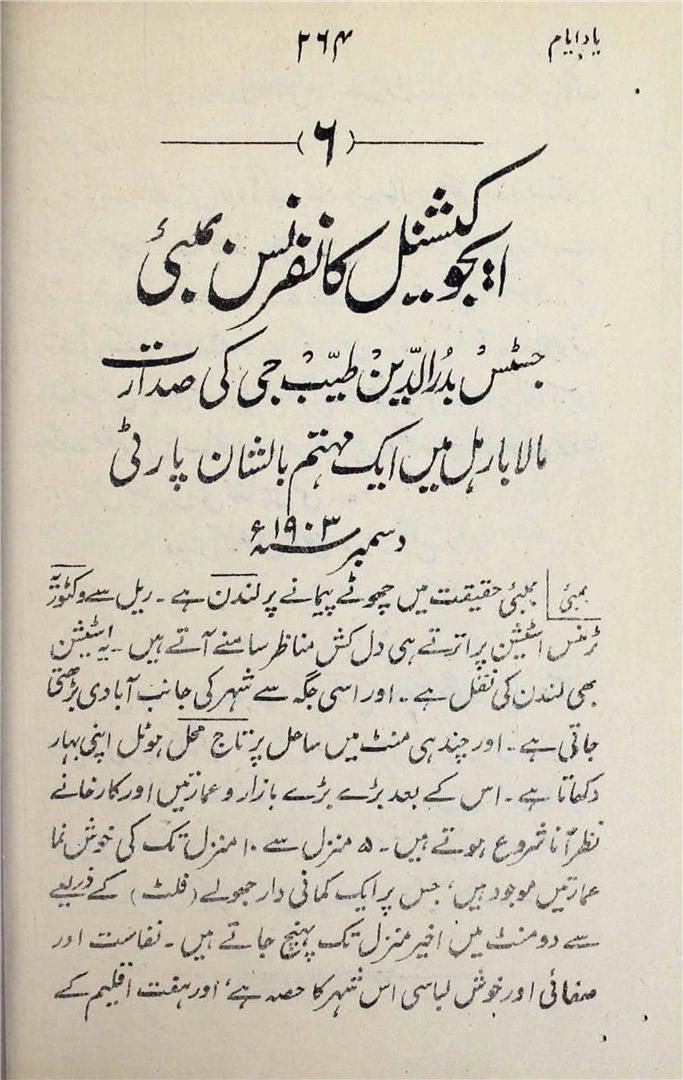 یاد ایام
۲۶۴
(۶)
ایجوکیشنل کانفرنس بمبئی
جسٹس بدُرالدّین طیّب جی کی صدارت
مالابار ہل میں ایک مہتم بالشان پارٹی
دسمبر ۱۹۰۳ء
بمبئی بمبئی حقیقت میں چھوٹے پیمانے پر لندن ہے۔ ریل سے وکٹوریہ
ٹرمنس اسٹیشن پر اترتے ہی دل کش مناظر سامنے آتے ہیں۔ یہ اسٹیشن
بھی لندن کی نقل ہے۔ اور اسی جگہ سے شہر کی جانب آبادی بڑھتی
جاتی ہے۔ اور چند ہی منٹ میں ساحل پر تاج محل ہوٹل اپنی بہار
دکھاتا ہے۔ اس کے بعد بڑے بڑے بازار و عمارتیں اور کارخانے
نظر آنا شروع ہوتے ہیں۔ ۵ منزل سے ۱۰ منزل تک کی خوش نما
عمارتیں موجود ہیں، جس پر ایک کمانی دار جھولے (فلٹ) کے ذریعے
سے دو منٹ میں اخیر منزل تک پہنچ جاتے ہیں۔ نفاست اور
صفائی اور خوش لباسی اس شہر کا حصہ ہے، اور ہفت اقلیم کے